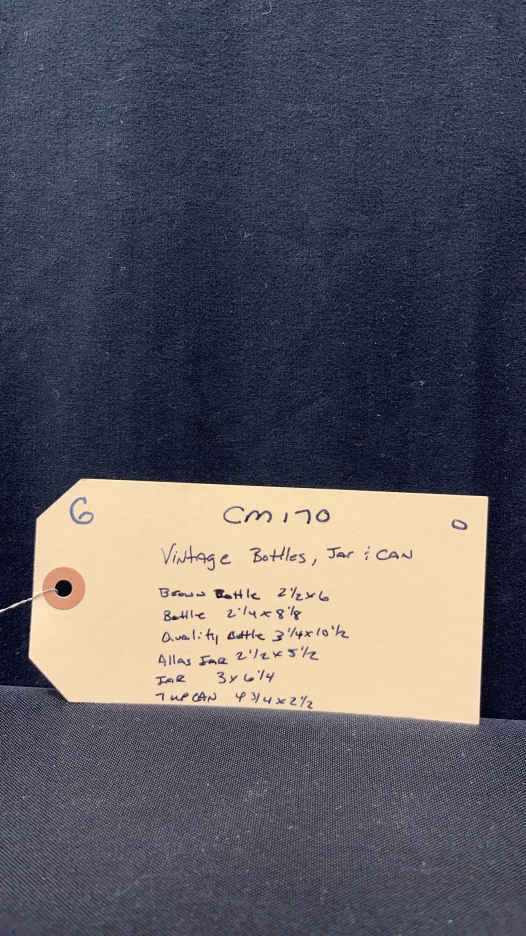 G
CM170
0
Vintage Bottles, Jar & CAN
Brown Bottle 2 1/2 x 6
Bottle 2 1/4 x 8 1/8
Quality Bottle 3 1/4 x 10 1/2
Atlas JAR 2 1/2 x 5 1/2
JAR 3 x 6 1/4
7 UP CAN 4 3/4 x 2 1/2